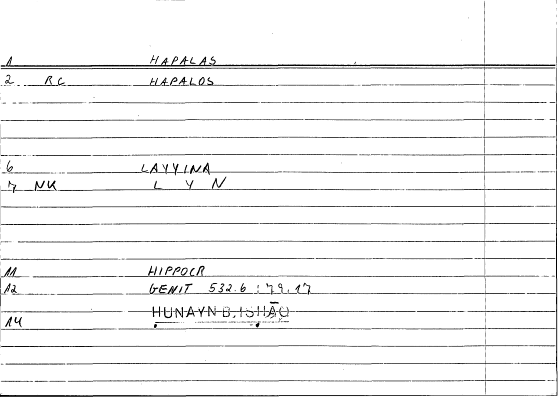 1 HAPALAS
2 RC HAPALOS
6 LAYYINA
7 NK L Y N
11 HIPPOCR
12 GENIT 532.6 : 79.17
14 ḤUNAYN B. ISḤĀQ